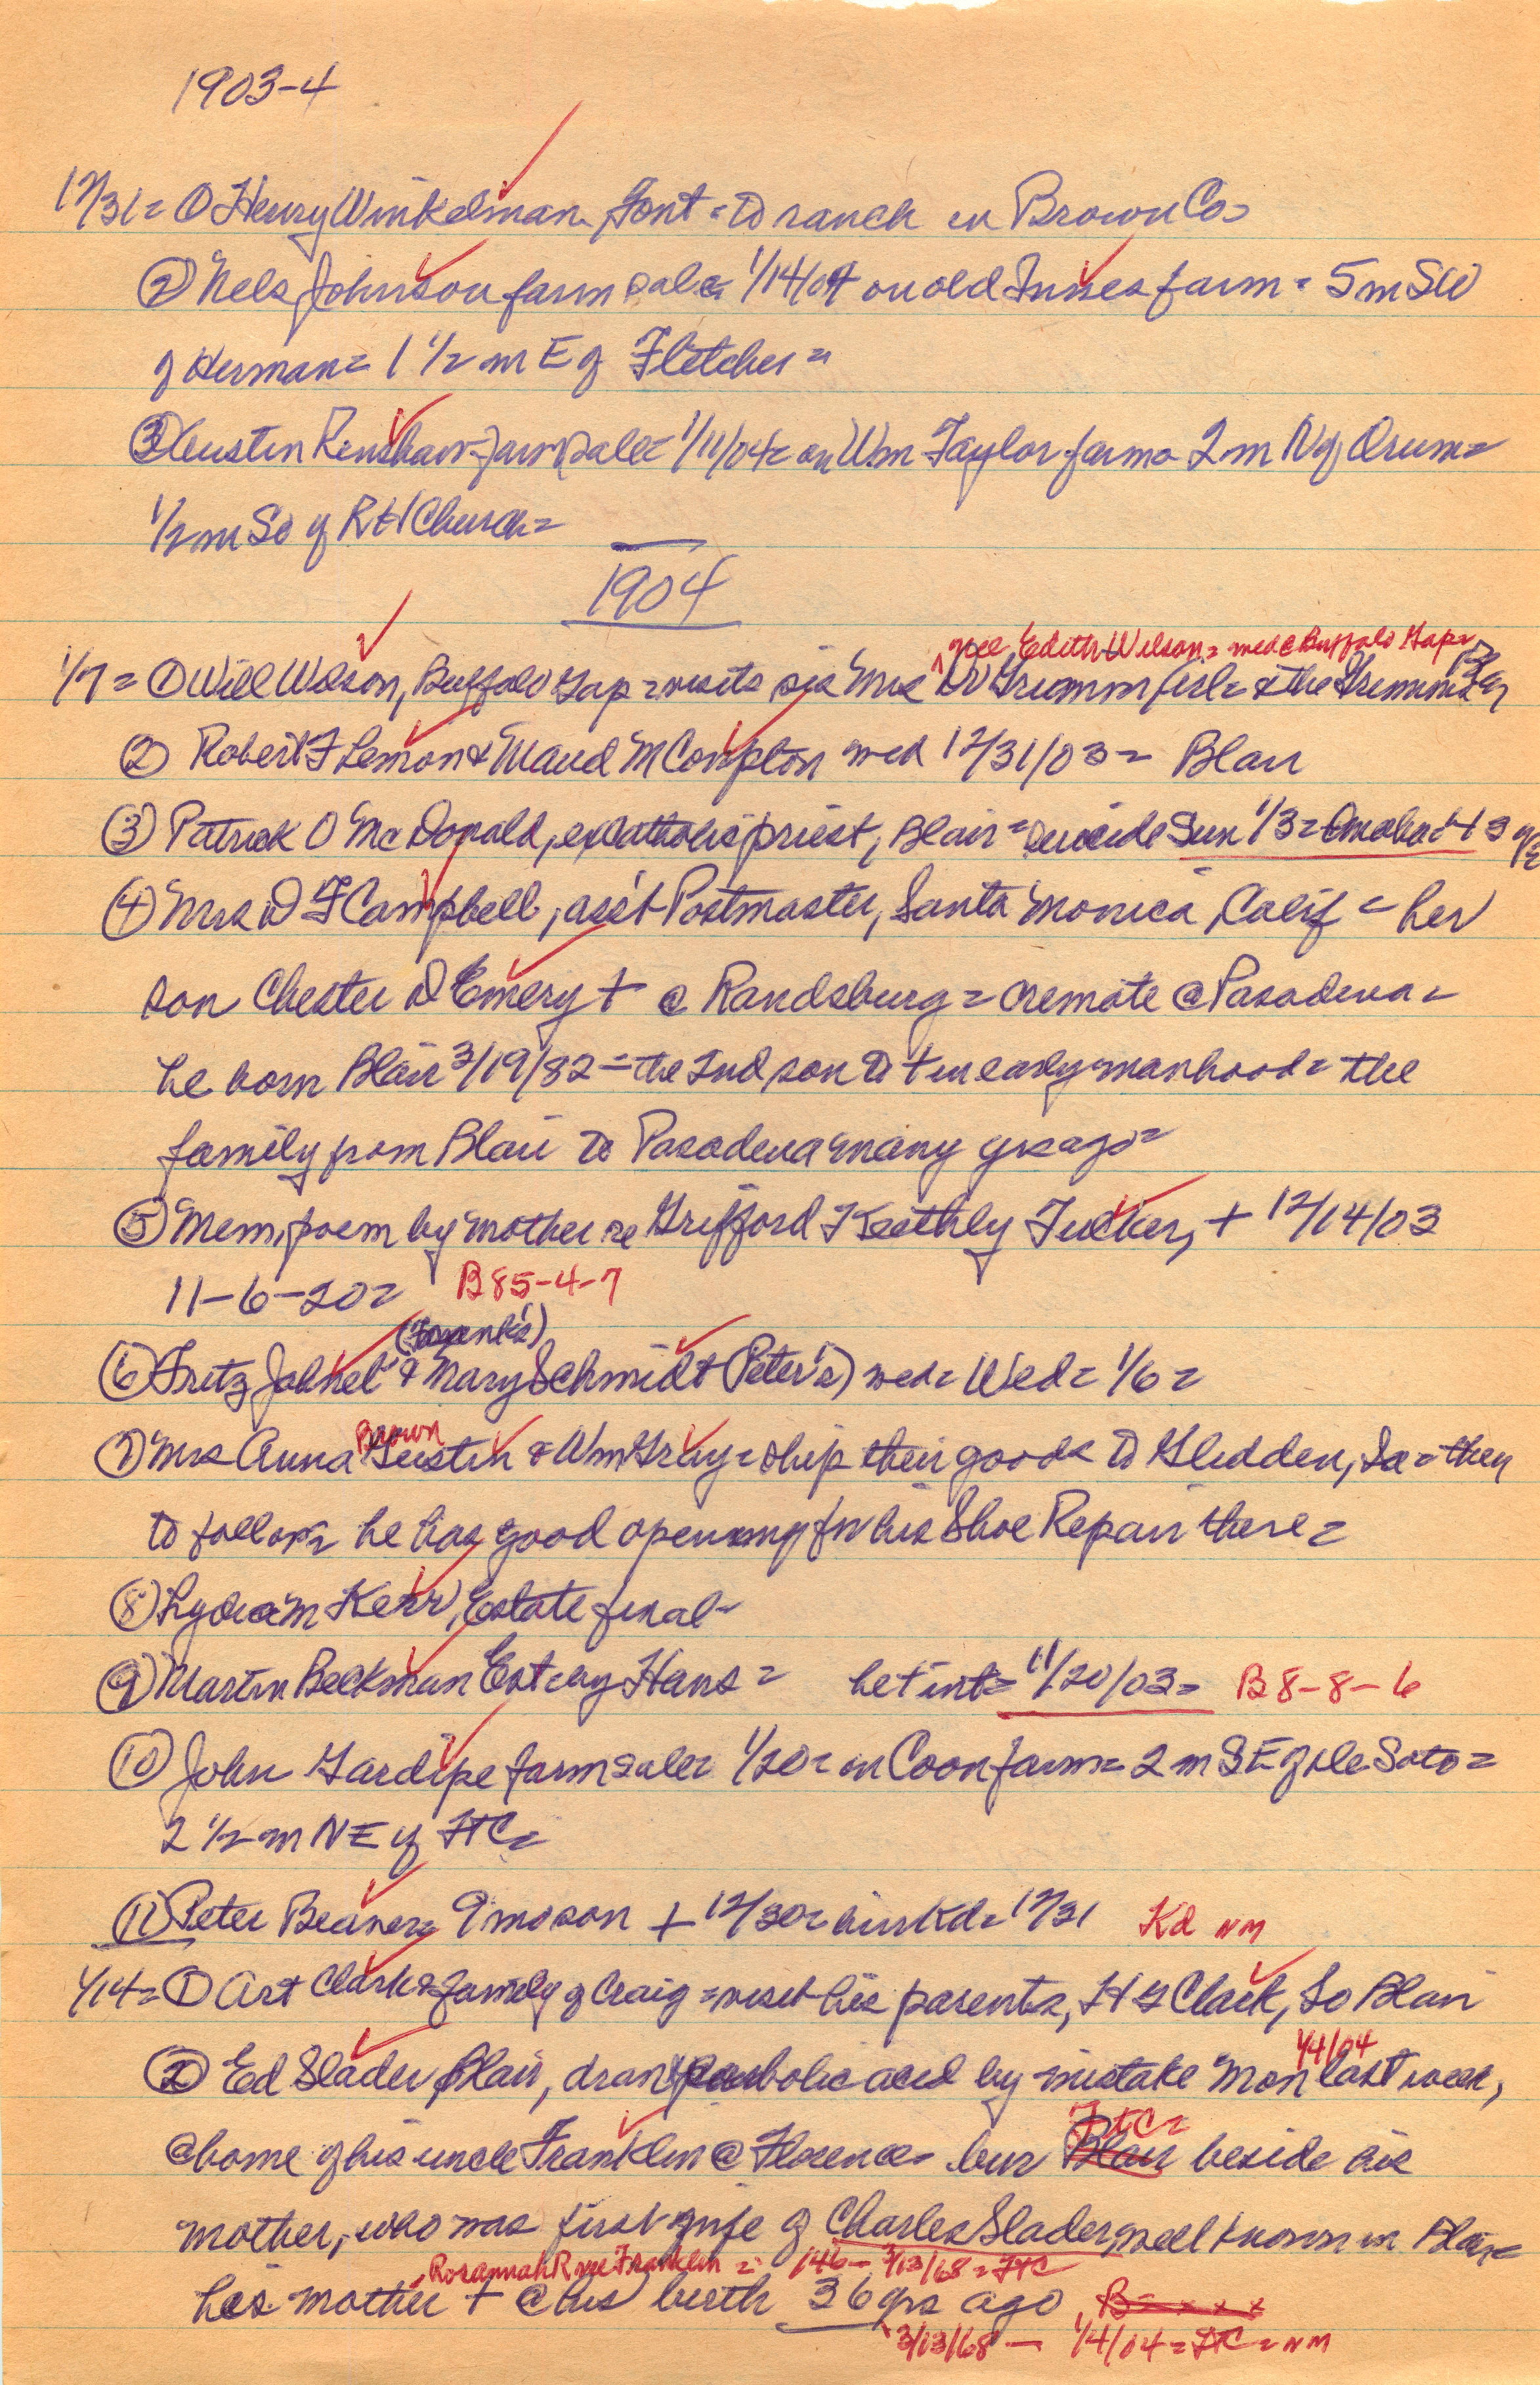 1903-4
12/31= ① Henry Winkelman, Font = to ranch in Brown Co=
② Nels Johnson farm sale= 1/14/04 on old Innes farm = 5 m SW
of Herman= 1 1/2 m E of Fletcher=
③ Austin Renshaw farm sale= 1/11/04= on Wm Taylor farm= 2 m N of Orum=
1/2 m So of RH Church=
1904
nee Edith Wilson= wed @ Buffalo Gap=
1/7= ① Will Wilson, Buffalo Gap = visits sis Mrs Dr Grumm & the Grumms
② Robert F Lemon & Maud M Compton wed 12/31/03= Blair
③ Patrick O McDonald, ex Catholic priest, Blair = suicide Sun 1/3= Omaha = 43 yrs
④ Mrs D F Campbell, ass't Postmaster, Santa Monica, Calif = her
son Chester D Emery + @ Randsburg = cremate @ Pasadena=
he born Blair 3/19/82 = the 2nd son to + in early manhood= the
family from Blair to Pasadena many yrs ago=
⑤ Mem. poem by mother re Grifford Keethly Tucker, + 12/14/03
11-6-20= B85-4-7
(Frank's)
⑥ Fritz Jahnel & Mary Schmidt (Peter's) wed= Wed= 1/6=
Brown
⑦ Mrs Anna Justin & Wm Gray = ship their goods to Glidden, Ia = they
to follow= he has good opening for his Shoe Repair there=
⑧ Lydia M Kerr, Estate final-
⑨ Martin Beckman Est by Hans = he + int= 11/20/03= B8-8-6
⑩ John Gardipe farm sale= 1/20= on Coon farm= 2 m SE of De Soto=
2 1/2 m NE of FTC=
⑪ Peter Beaner= 9 mo son + 12/30= bur Kd= 12/31 Kd NM
1/14= ① Art Clark & family of Craig = visit his parents, H G Clark, So Blair
1/4/04
② Ed Slader, Blair, drank carbolic acid by mistake Mon last week,
FtC=
@ home of his uncle Franklin @ Florence= bur Blair beside his
mother, who was first wife of Charles Slader, well known in Blair=
Rosannah R nee Franklin = 146- 3/13/68= FTC
his mother + @ his birth 36 yrs ago, B= x x x
3/13/68 - 1/4/04= FTC= NM